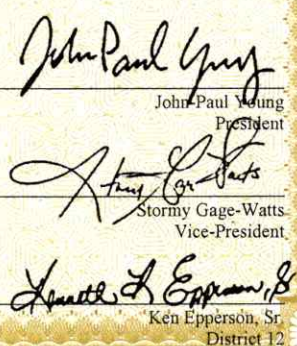 John Paul Young
John-Paul Young
President
Stormy Gage-Watts
Stormy Gage-Watts
Vice-President
Kenneth R Epperson, Sr
Ken Epperson, Sr.
District 12